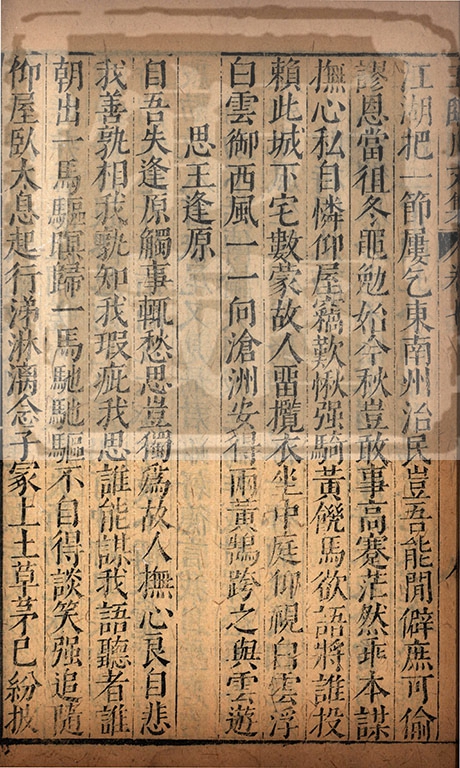 江湖把一節屢乞東南州治民豈吾能閒僻庶可偷
謬恩當徂冬黽勉始今秋豈敢事高蹇茫然乖本謀
撫心私自憐仰屋竊歎愀强騎黃饑馬欲語將誰投
賴此城下宅數蒙故人畱攬衣坐中庭仰視白雲浮
白雲御西風一一向滄洲安得兩黃鵠跨之與雲遊
思王逢原
自吾失逢原觸事輒愁思豈獨爲故人撫心良自悲
我善孰相我孰知我瑕疵我思誰能謀我語聽者誰
朝出一馬驅暝歸一馬馳馳驅不自得談笑强追隨
仰屋臥太息起行涕淋漓念子冢上土草茅已紛披